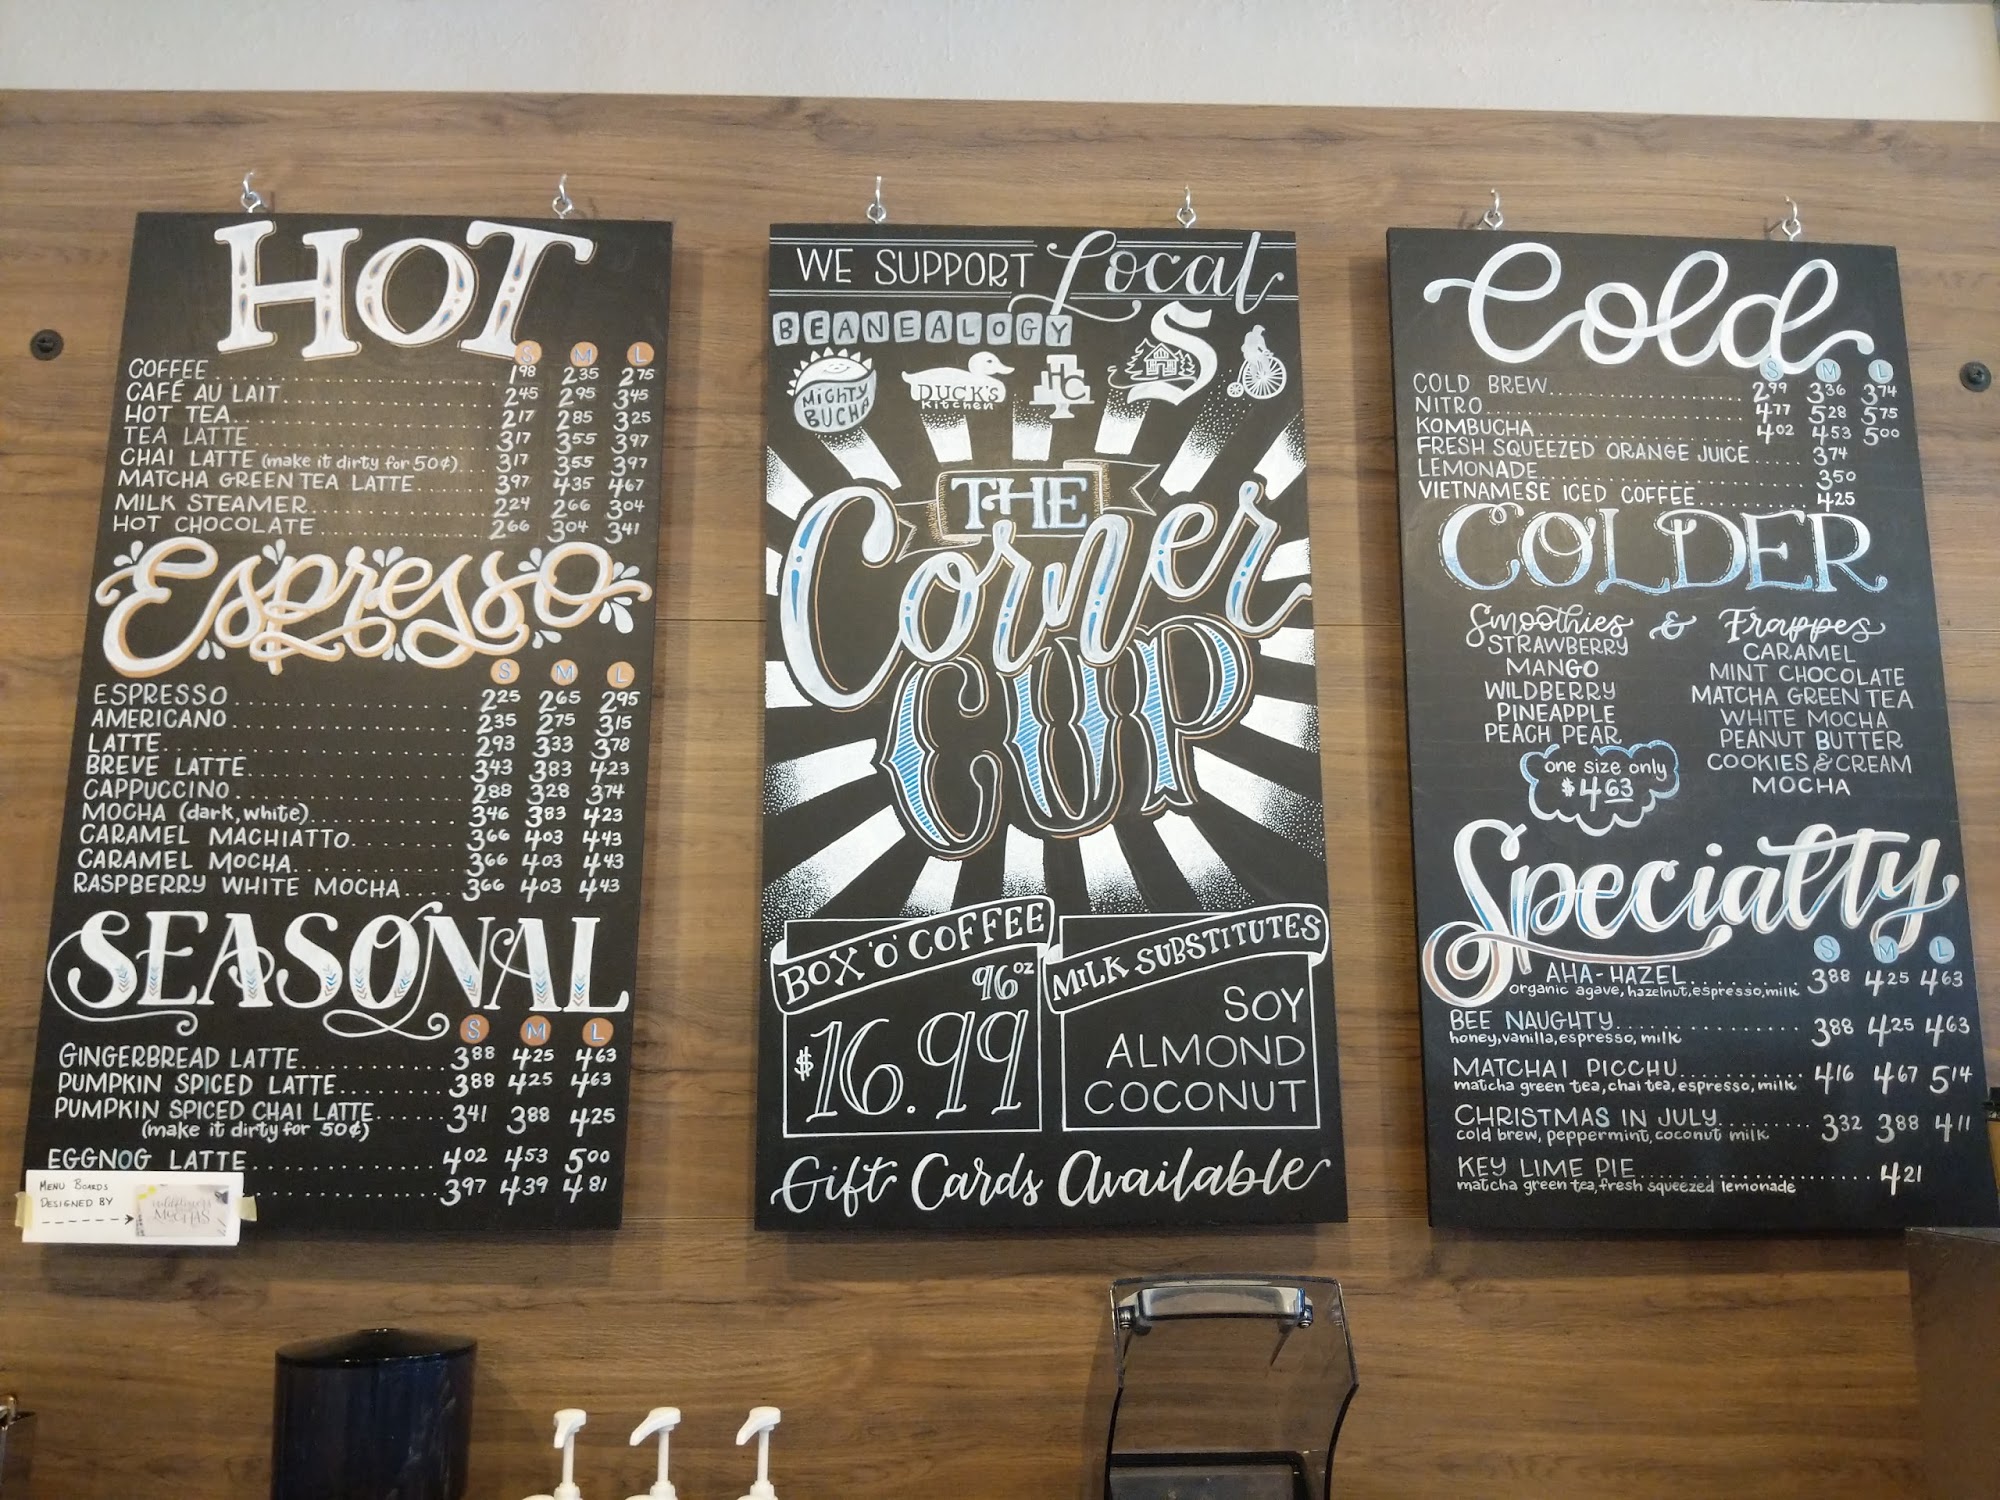 HOT
S M L
COFFEE 1.98 2.35 2.75
CAFÉ AU LAIT 2.45 2.95 3.45
HOT TEA 2.17 2.85 3.25
TEA LATTE 3.17 3.55 3.97
CHAI LATTE (make it dirty for 50¢) 3.17 3.55 3.97
MATCHA GREEN TEA LATTE 3.97 4.35 4.67
MILK STEAMER 2.24 2.66 3.04
HOT CHOCOLATE 2.66 3.04 3.41
Espresso
S M L
ESPRESSO 2.25 2.65 2.95
AMERICANO 2.35 2.75 3.15
LATTE 2.93 3.33 3.78
BREVE LATTE 3.43 3.83 4.23
CAPPUCCINO 2.88 3.28 3.74
MOCHA (dark, white) 3.46 3.83 4.23
CARAMEL MACHIATTO 3.66 4.03 4.43
CARAMEL MOCHA 3.66 4.03 4.43
RASPBERRY WHITE MOCHA 3.66 4.03 4.43
SEASONAL
S M L
GINGERBREAD LATTE 3.88 4.25 4.63
PUMPKIN SPICED LATTE 3.88 4.25 4.63
PUMPKIN SPICED CHAI LATTE 3.41 3.88 4.25
(make it dirty for 50¢)
EGGNOG LATTE 4.02 4.53 5.00
3.97 4.39 4.81
MENU BOARDS
DESIGNED BY
MOCHAS
WE SUPPORT Local
BEANEALOGY
MIGHTY
BUCHA
DUCK'S
Kitchen
HCC
S
THE
Corner
CUP
BOX 'O' COFFEE
96 oz
$16.99
MILK SUBSTITUTES
SOY
ALMOND
COCONUT
Gift Cards Available
Cold
S M L
COLD BREW 2.99 3.36 3.74
NITRO 4.77 5.28 5.75
KOMBUCHA 4.02 4.53 5.00
FRESH SQUEEZED ORANGE JUICE 3.74
LEMONADE 3.50
VIETNAMESE ICED COFFEE 4.25
COLDER
Smoothies & Frappes
STRAWBERRY
MANGO
WILDBERRY
PINEAPPLE
PEACH PEAR
one size only
$4.63
CARAMEL
MINT CHOCOLATE
MATCHA GREEN TEA
WHITE MOCHA
PEANUT BUTTER
COOKIES & CREAM
MOCHA
Specialty
S M L
AHA-HAZEL 3.88 4.25 4.63
organic agave, hazelnut, espresso, milk
BEE NAUGHTY 3.88 4.25 4.63
honey, vanilla, espresso, milk
MATCHAI PICCHU 4.16 4.67 5.14
matcha green tea, chai tea, espresso, milk
CHRISTMAS IN JULY 3.32 3.88 4.11
cold brew, peppermint, coconut milk
KEY LIME PIE 4.21
matcha green tea, fresh squeezed lemonade